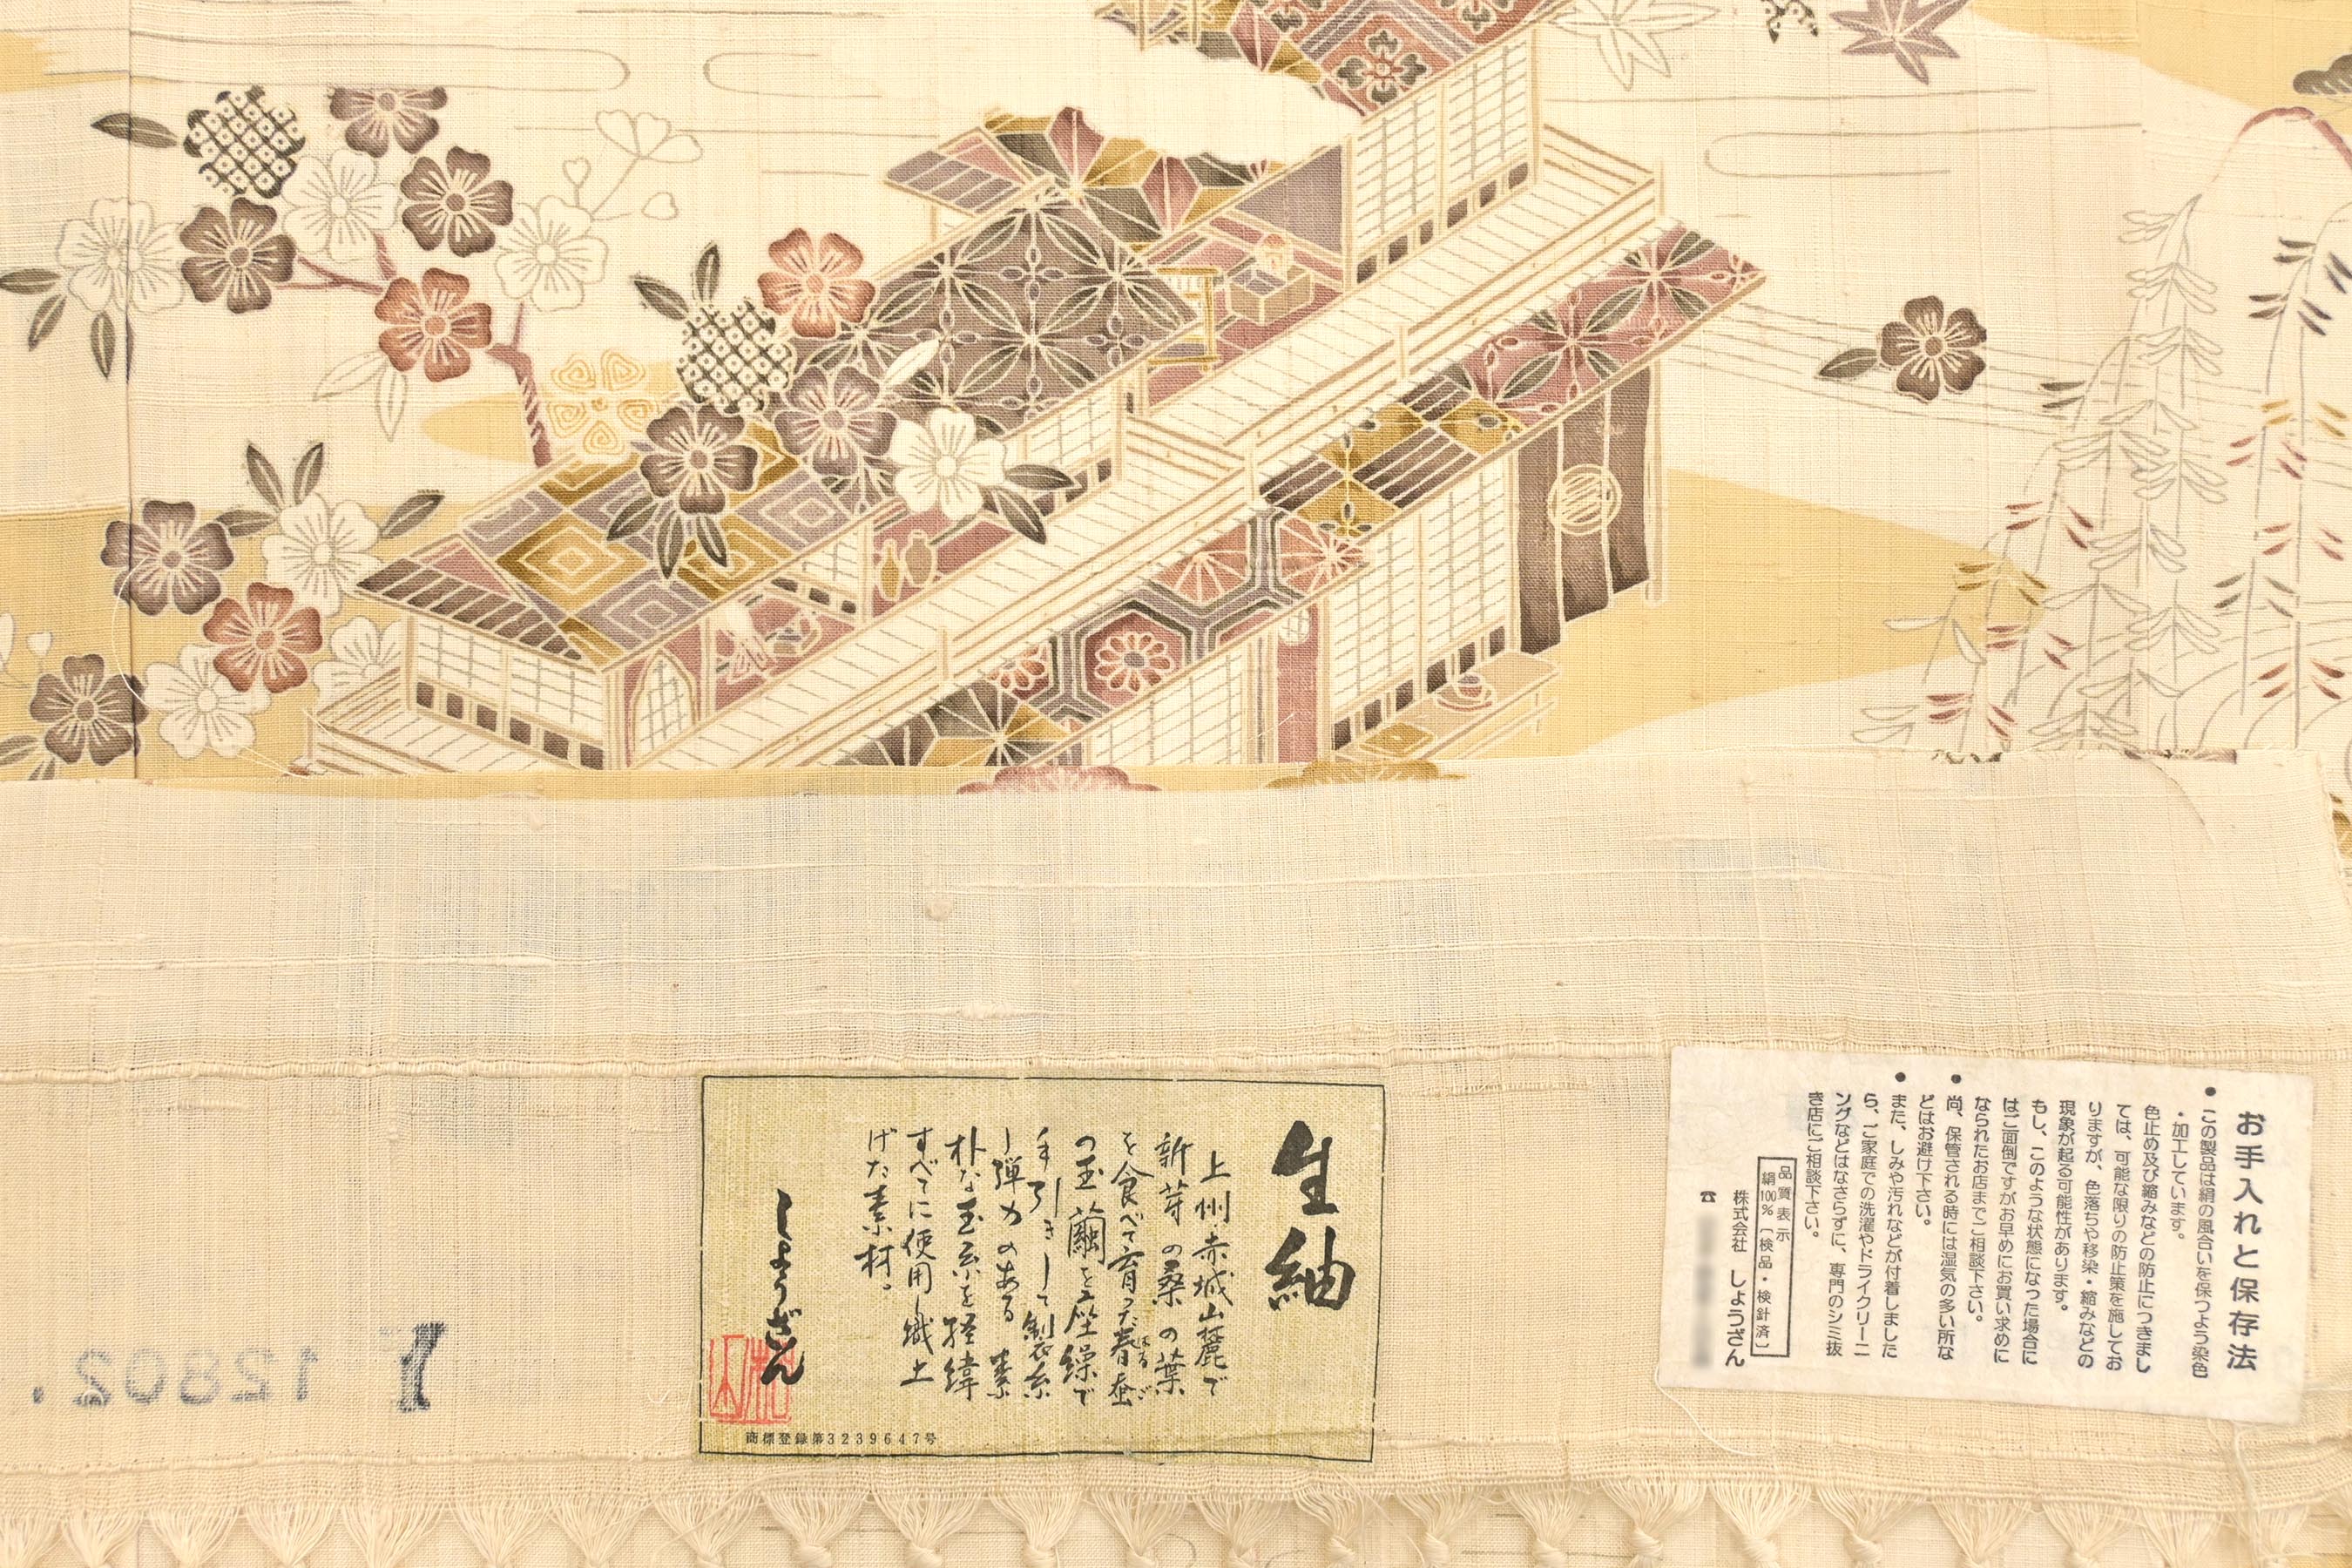 お手入れと保存法
● この製品は絹の風合いを保つよう染色
・加工しています。
色止め及び縮みなどの防止につきまし
ては、可能な限りの防止策を施してお
りますが、色落ちや移染・縮みなどの
現象が起る可能性があります。
もし、このような状態になった場合に
はご面倒ですがお早めにお買い求めに
なられたお店までご相談下さい。
● 尚、保管される時には湿気の多い所な
どはお避け下さい。
● また、しみや汚れなどが付着しました
ら、ご家庭での洗濯やドライクリーニ
ングなどはなさらずに、専門のシミ抜
き店にご相談下さい。
品質表示
絹100%〔検品・検針済〕
株式会社 しょうざん
☎
生紬
上州・赤城山麓で
新芽の桑の葉
を食べて育った春蚕
はるご
の玉繭を座繰で
手引きして製糸
し弾力のある素
朴な玉糸を経緯
すべてに使用し織上
げた素材。
しょうざん
商標登録第3239647号
1
12802.